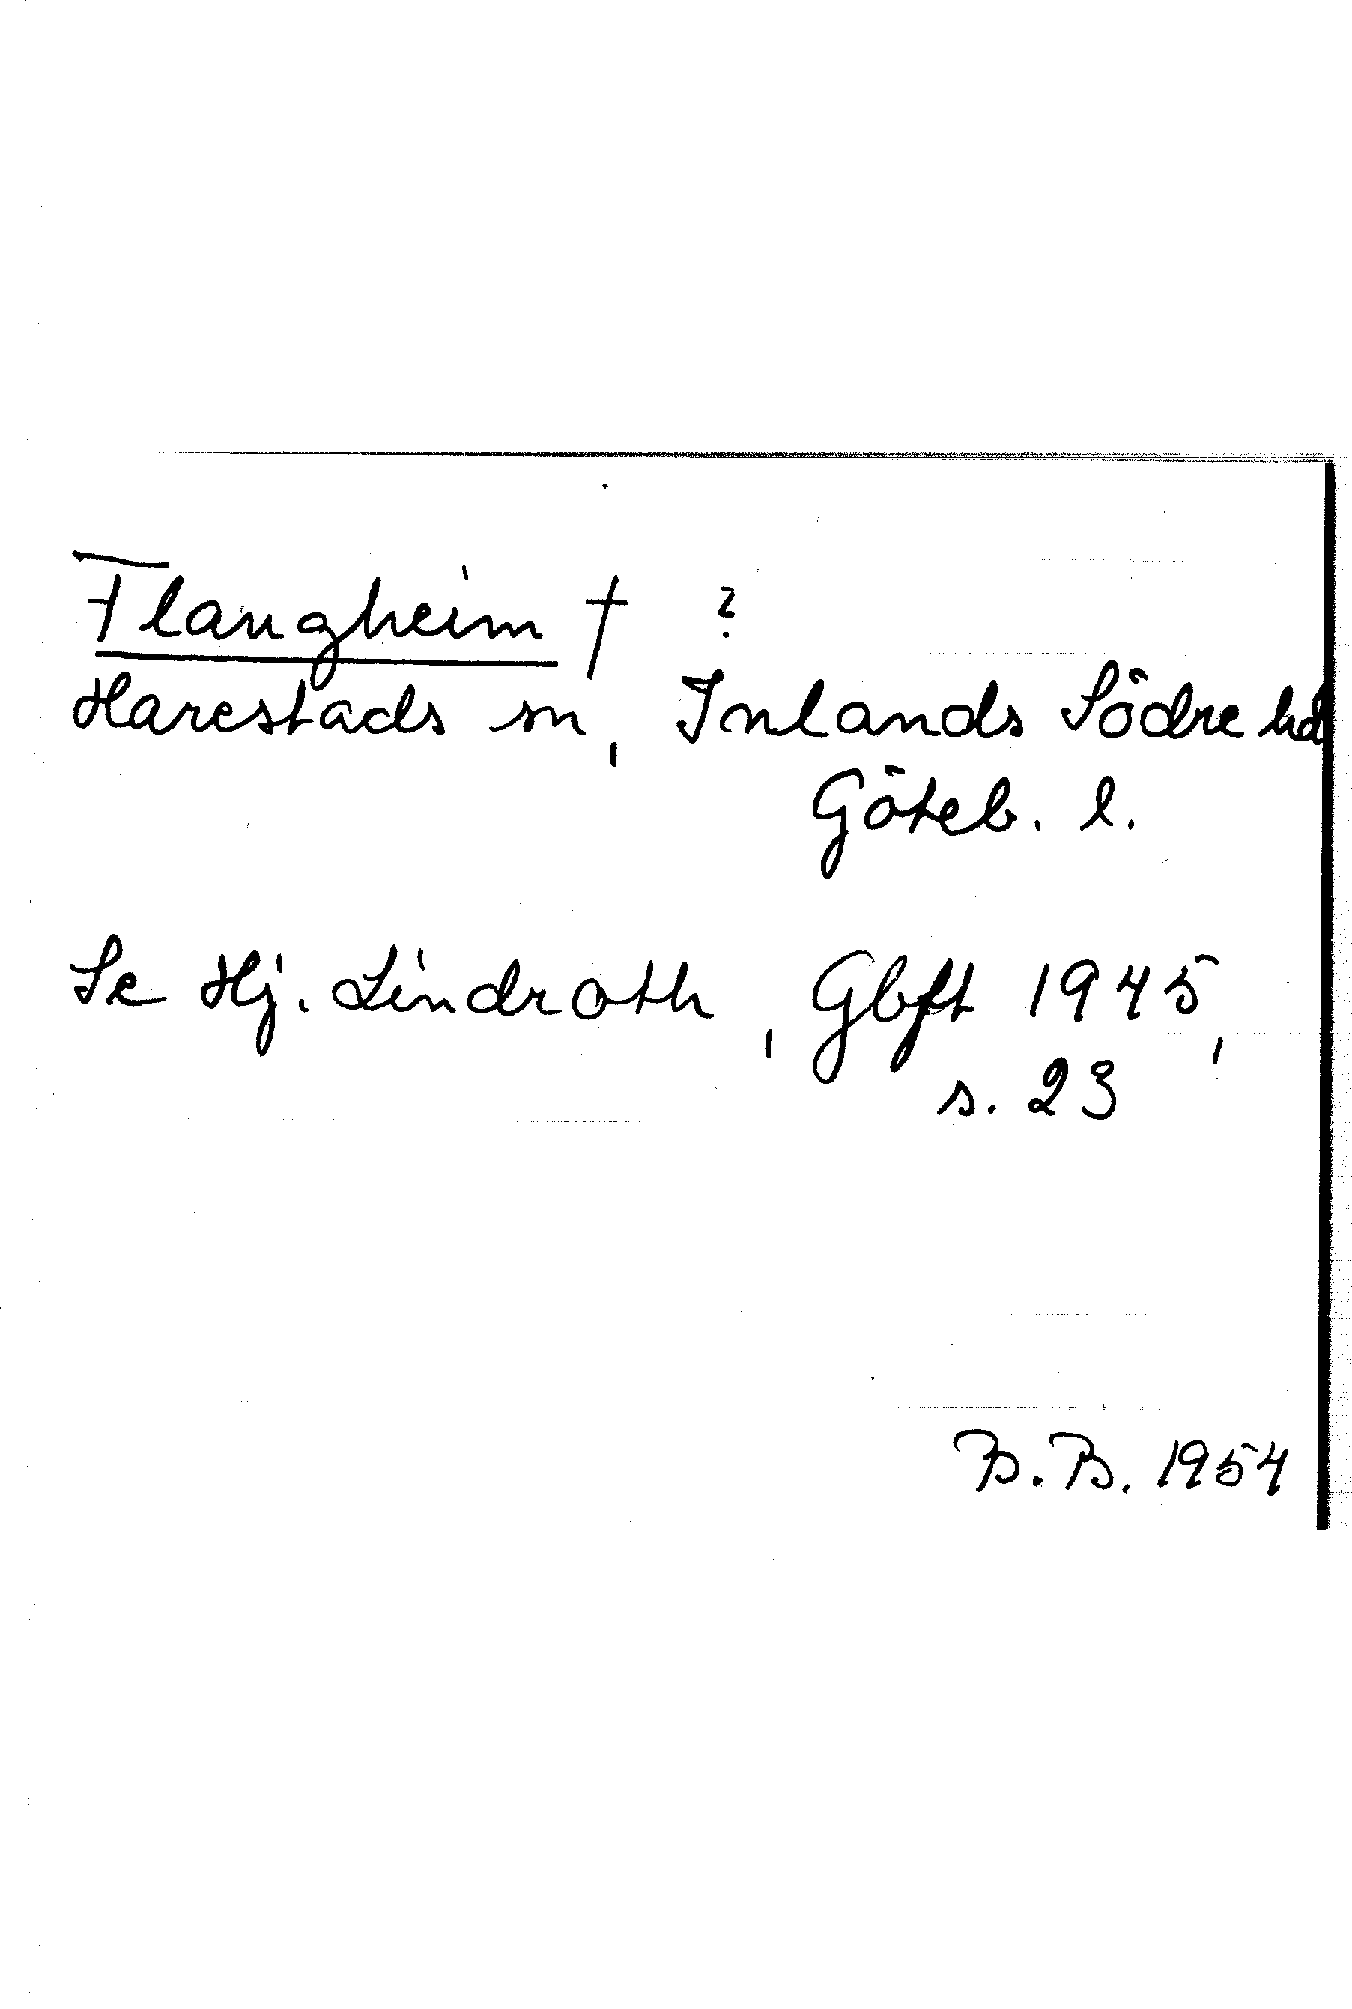 Flaugheim † ?
Harestads sn, Inlands Södre hd
Göteb. l.
Se Hj. Lindroth, Gbft 1945,
s. 23
B. B. 1954